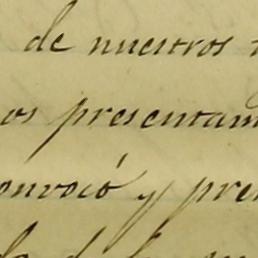 de nuestros
os presentam
onvocó y pre